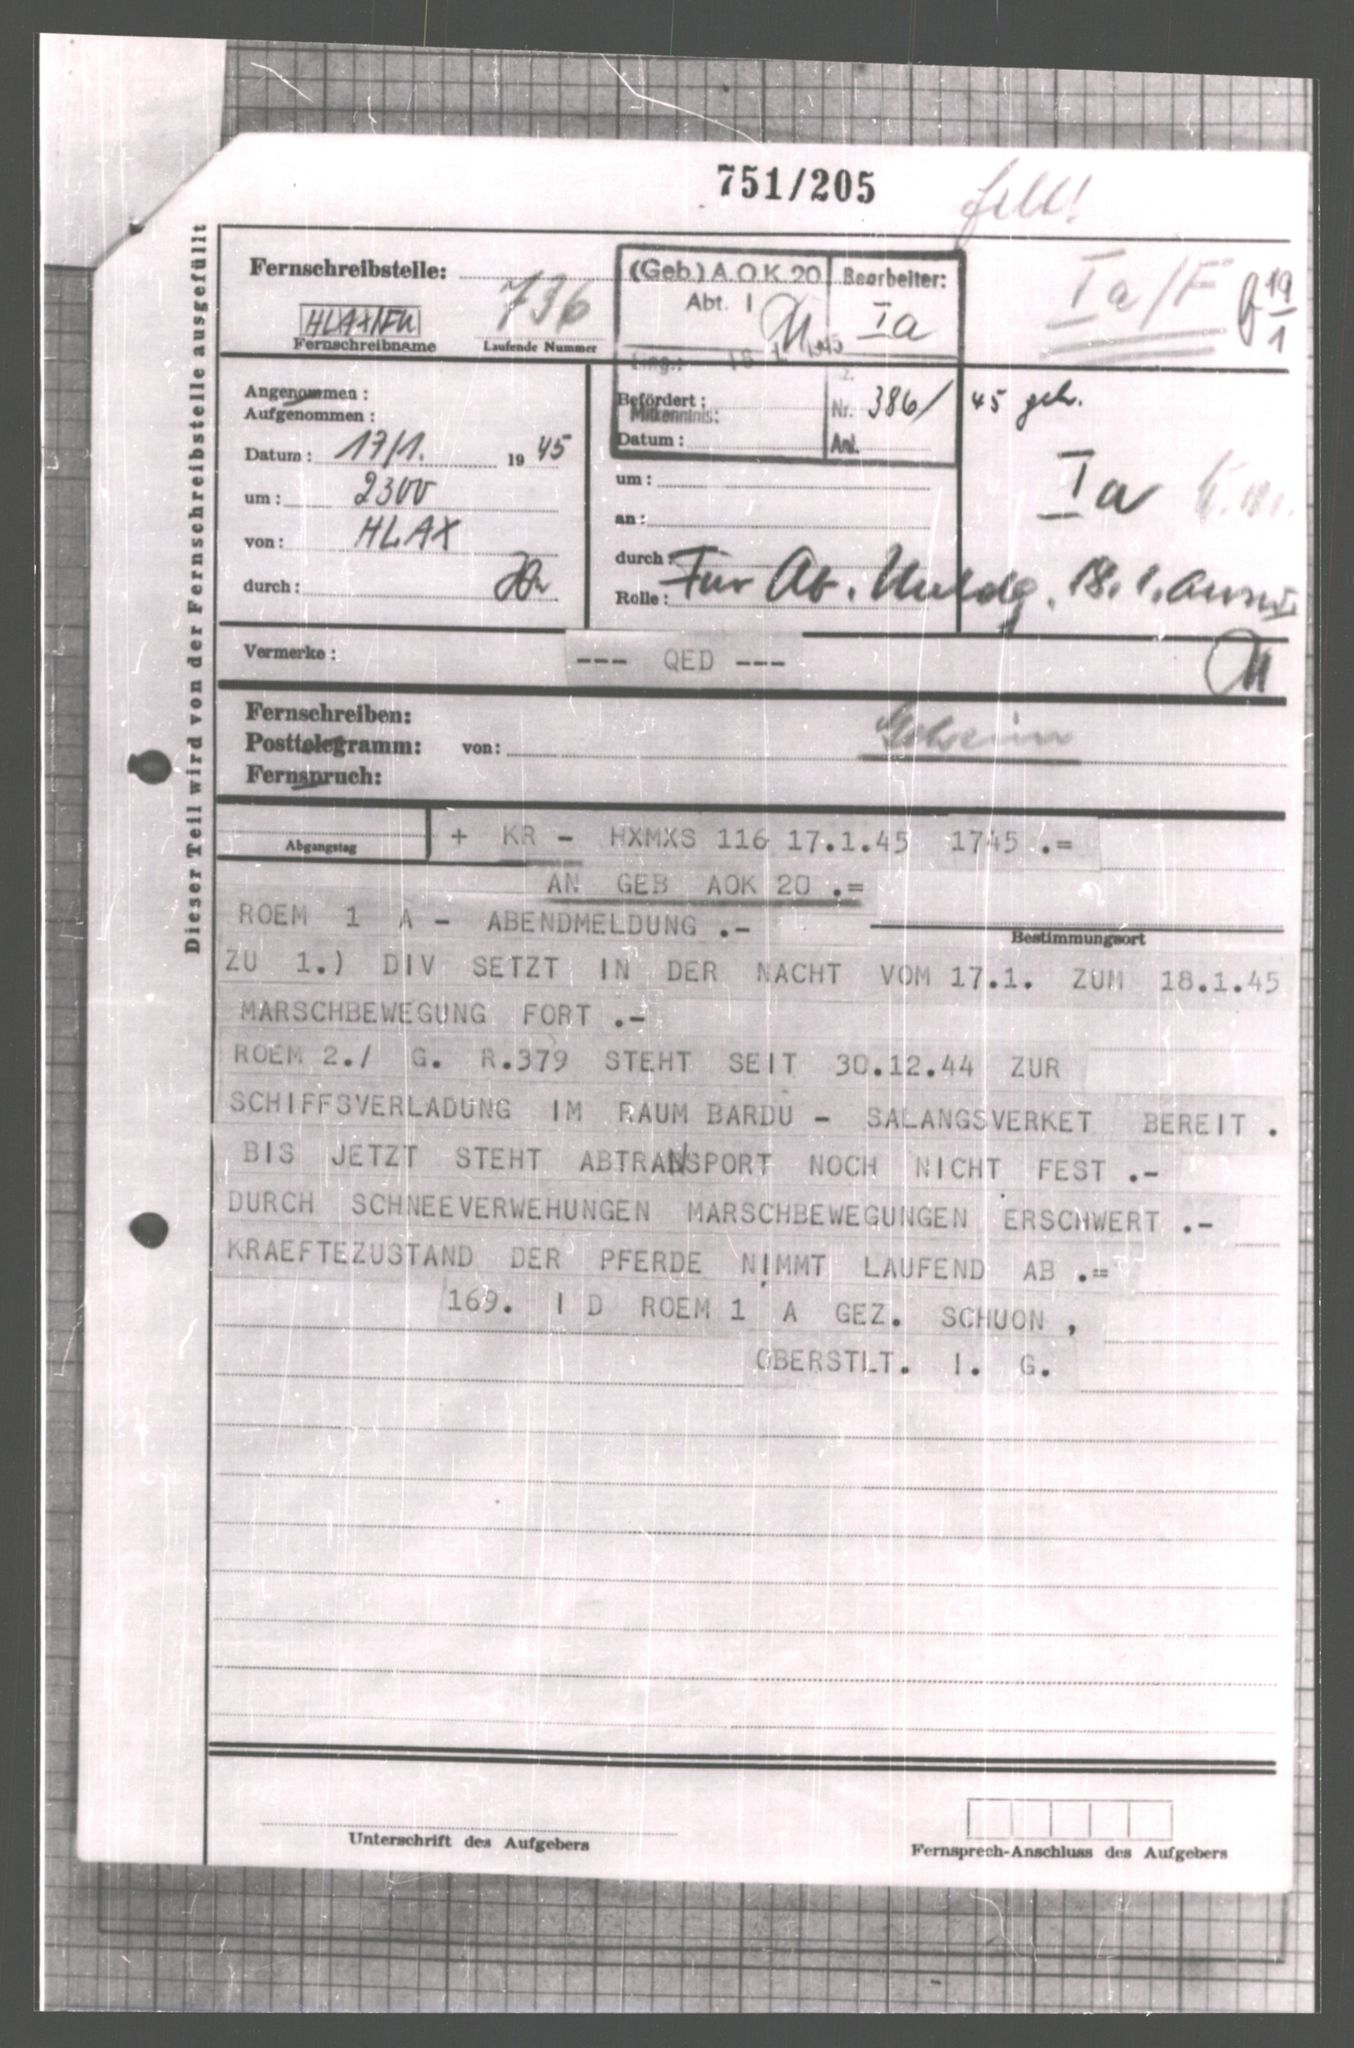 751/205
Fernschreibstelle:
736
Fernschreibname
Laufende Nummer
(Geb.) A.O.K. 20
Abt. I
Bearbeiter:
Ia
Ia/F
19/1
Dieser Teil wird von der Fernschreibstelle ausgefüllt
Angenommen:
Aufgenommen:
Datum: 17/1. 1945
um: 2300
von: HLAX
durch:
Befördert:
Mitkenntnis:
Datum:
Nr. 386/45 geh.
Anl.
um:
an:
durch:
Rolle:
Ia
Für Ab. Meldg. 18.1.
Vermerke:
--- QED ---
Fernschreiben:
Posttelegramm: von:
Fernspruch:
Geheim
Abgangstag
+ KR - HXMXS 116 17.1.45 1745 .=
AN GEB AOK 20 .=
Bestimmungsort
ROEM 1 A - ABENDMELDUNG .-
ZU 1.) DIV SETZT IN DER NACHT VOM 17.1. ZUM 18.1.45
MARSCHBEWEGUNG FORT .-
ROEM 2./ G. R.379 STEHT SEIT 30.12.44 ZUR
SCHIFFSVERLADUNG IM RAUM BARDU - SALANGSVERKET BEREIT .
BIS JETZT STEHT ABTRANSPORT NOCH NICHT FEST .-
DURCH SCHNEEVERWEHUNGEN MARSCHBEWEGUNGEN ERSCHWERT .-
KRAEFTEZUSTAND DER PFERDE NIMMT LAUFEND AB .=
169. I D ROEM 1 A GEZ. SCHUON ,
OBERSTLT. I. G.
Unterschrift des Aufgebers
Fernsprech-Anschluss des Aufgebers